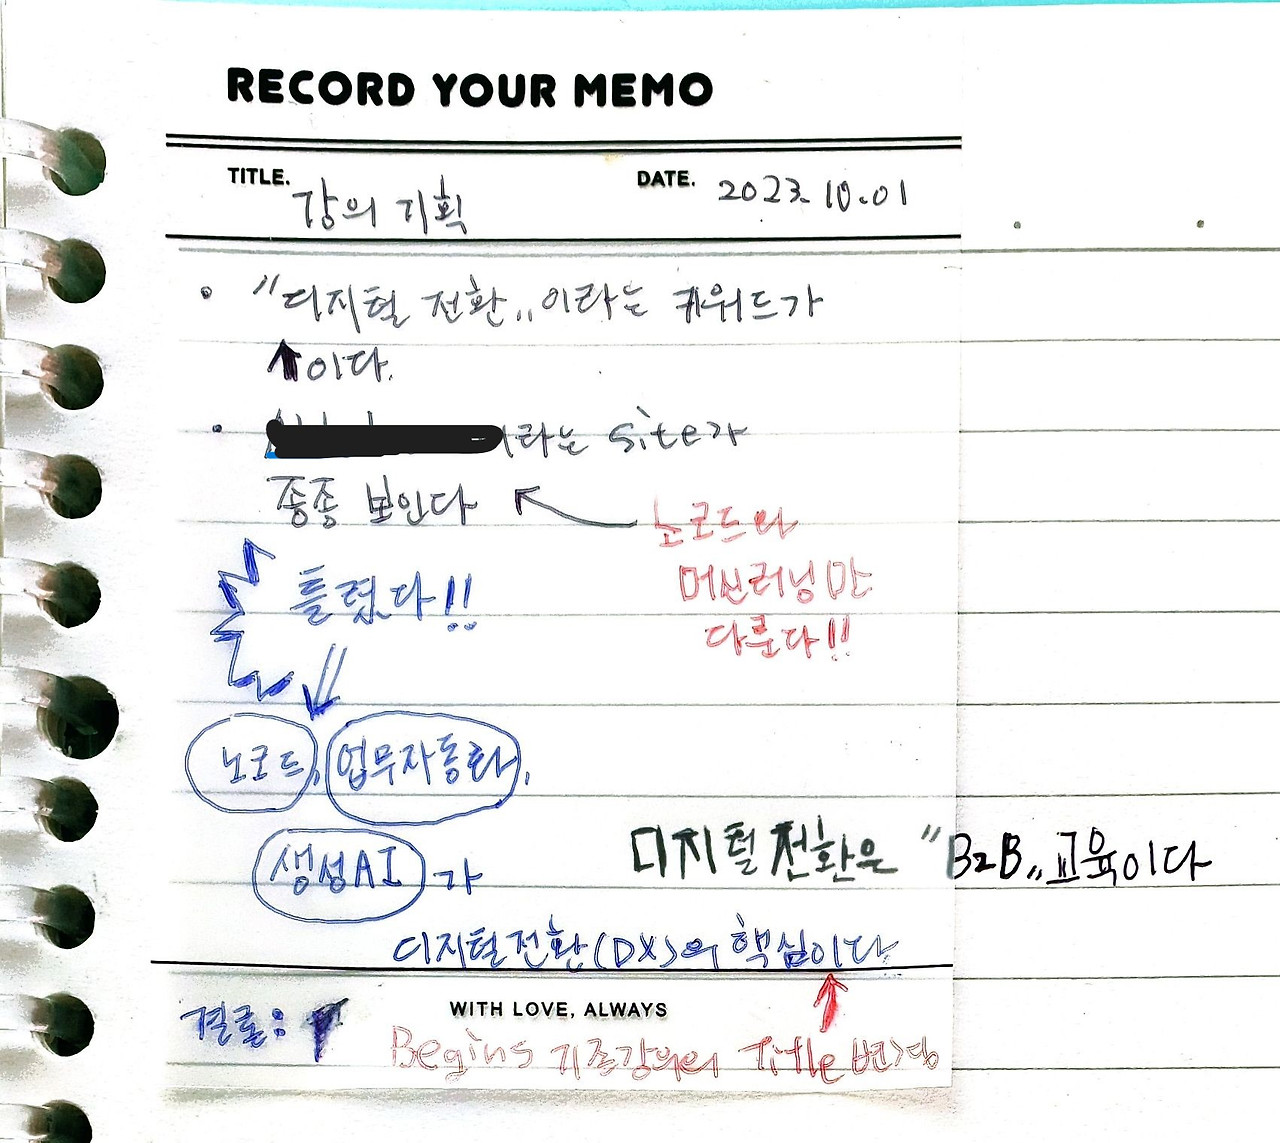 RECORD YOUR MEMO
TITLE. 강의 기획
DATE. 2023.10.01
• "디지털 전환„ 이라는 키워드가
↑이다.
• 이라는 site가
종종 보인다
노코드와
머신러닝만
다룬다!!
틀렸다!!
노코드, 업무자동화,
생성AI가
디지털전환은 "B2B„ 교육이다
디지털전환(DX)의 핵심이다
WITH LOVE, ALWAYS
결론:
Begins 기존강의의 Title 변경